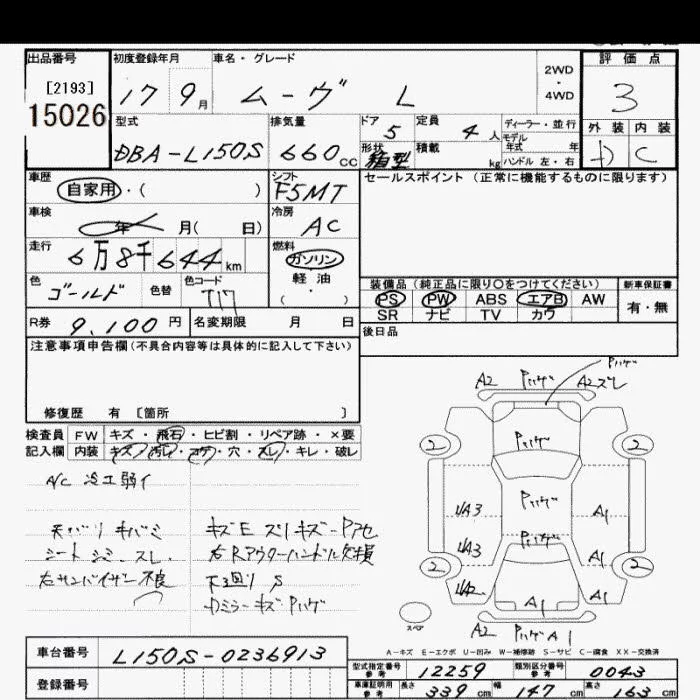 出品番号 初度登録年月 車名・グレード 評価点
[2193]
15026
17 9月 ムーヴ L 2WD・4WD 3
型式 排気量 ドア 定員 ディーラー・並行 外装 内装
DBA-L150S 660cc 5 4人 モデル年式 年 C
形状 箱型 積載 kg ハンドル 左・右
車歴 シフト セールスポイント(正常に機能するものに限ります)
自家用・( ) F5MT
車検 冷房
年 月( 日) AC
走行 燃料
6万8千644km ガソリン
色 色替 色コード 軽油
ゴールド T17 ( ・ )
装備品(純正品に限り○をつけてください) 新車保証書
PS PW ABS エアB AW 有・無
SR ナビ TV カワ
R券 9,100円 名変期限 月 日 後日品
注意事項申告欄(不具合内容等は具体的に記入して下さい)
修復歴 有 [箇所 ]
検査員 FW キズ・飛石・ヒビ割・リペア跡・×要
記入欄 内装 キズ・汚レ・コゲ・穴・スレ・キレ・破レ
A/C 冷エ弱イ
天バリ キバミ
シート シミ・スレ
右サンバイザー不良
キズE スリキズ・P
右Rアウターハンドル欠損
下廻り S
ミラーキズ Pハゲ
Pハゲ
A2 Pハゲ A2スレ
2 Pハゲ 2
UA3 Pハゲ A1
UA3 Pハゲ A1
2 2
A1 A1
スペア A2 PハゲA1
A-キズ E-エクボ U-凹み W-補修跡 S-サビ C-腐食 XX-交換済
車台番号 L150S-0236913
型式指定番号 参考 12259 類別区分番号 参考 0043
登録番号 車庫証明用 参考 長さ 339cm 幅 147cm 高さ 163cm